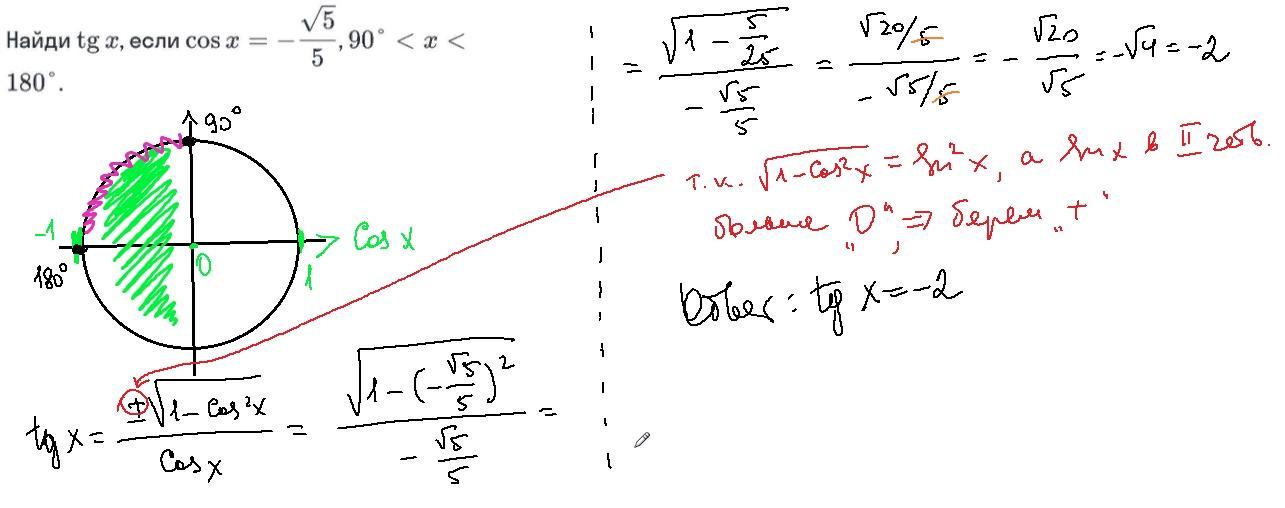 Найди tg x, если cos x = −√5/5, 90° < x <
180°.
90°
-1
180°
0
1
Cos x
tg x = ±√(1 − Cos²x) / Cos x = √(1 − (−√5/5)²) / (−√5/5) =
= √(1 − 5/25) / (−√5/5) = (√20/5) / (−√5/5) = −√20/√5 = −√4 = −2
т.к. √(1−Cos²x) = sin²x, а sin x в II четв.
больше „0“, ⇒ берем „+“
Ответ: tg x = −2